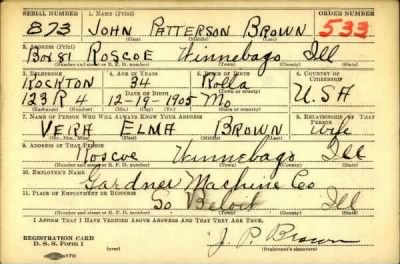 SERIAL NUMBER 1. NAME (Print) ORDER NUMBER
873 JOHN PATTERSON BROWN 533
(First) (Middle) (Last)
2. ADDRESS (Print)
Box 81 ROSCOE Winnebago Ill
(Number and street or R. F. D. number) (Town) (County) (State)
3. TELEPHONE 4. AGE IN YEARS 5. PLACE OF BIRTH 6. COUNTRY OF CITIZENSHIP
ROCKTON 34 Rolla
DATE OF BIRTH (Town or county) U.S.A
123 R 4 12-19-1905 Mo
(Exchange) (Number) (Mo.) (Day) (Yr.) (State or country)
7. NAME OF PERSON WHO WILL ALWAYS KNOW YOUR ADDRESS 8. RELATIONSHIP OF THAT PERSON
VERA ELMA BROWN wife
(Mr., Mrs., Miss) (First) (Middle) (Last)
9. ADDRESS OF THAT PERSON
Roscoe Winnebago Ill
(Number and street or R. F. D. number) (Town) (County) (State)
10. EMPLOYER'S NAME
Gardner Machine Co
11. PLACE OF EMPLOYMENT OR BUSINESS
So Beloit Ill
(Number and street or R. F. D. number) (Town) (County) (State)
I AFFIRM THAT I HAVE VERIFIED ABOVE ANSWERS AND THAT THEY ARE TRUE.
REGISTRATION CARD
D. S. S. Form 1 J. P. Brown
(Registrant's signature)